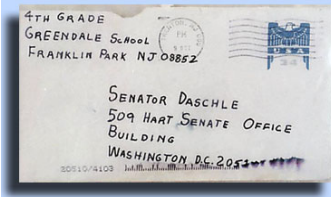 4TH GRADE
GREENDALE SCHOOL
FRANKLIN PARK NJ 08852
PM
USA
34
SENATOR DASCHLE
509 HART SENATE OFFICE
BUILDING
WASHINGTON D.C. 205
20510/4103